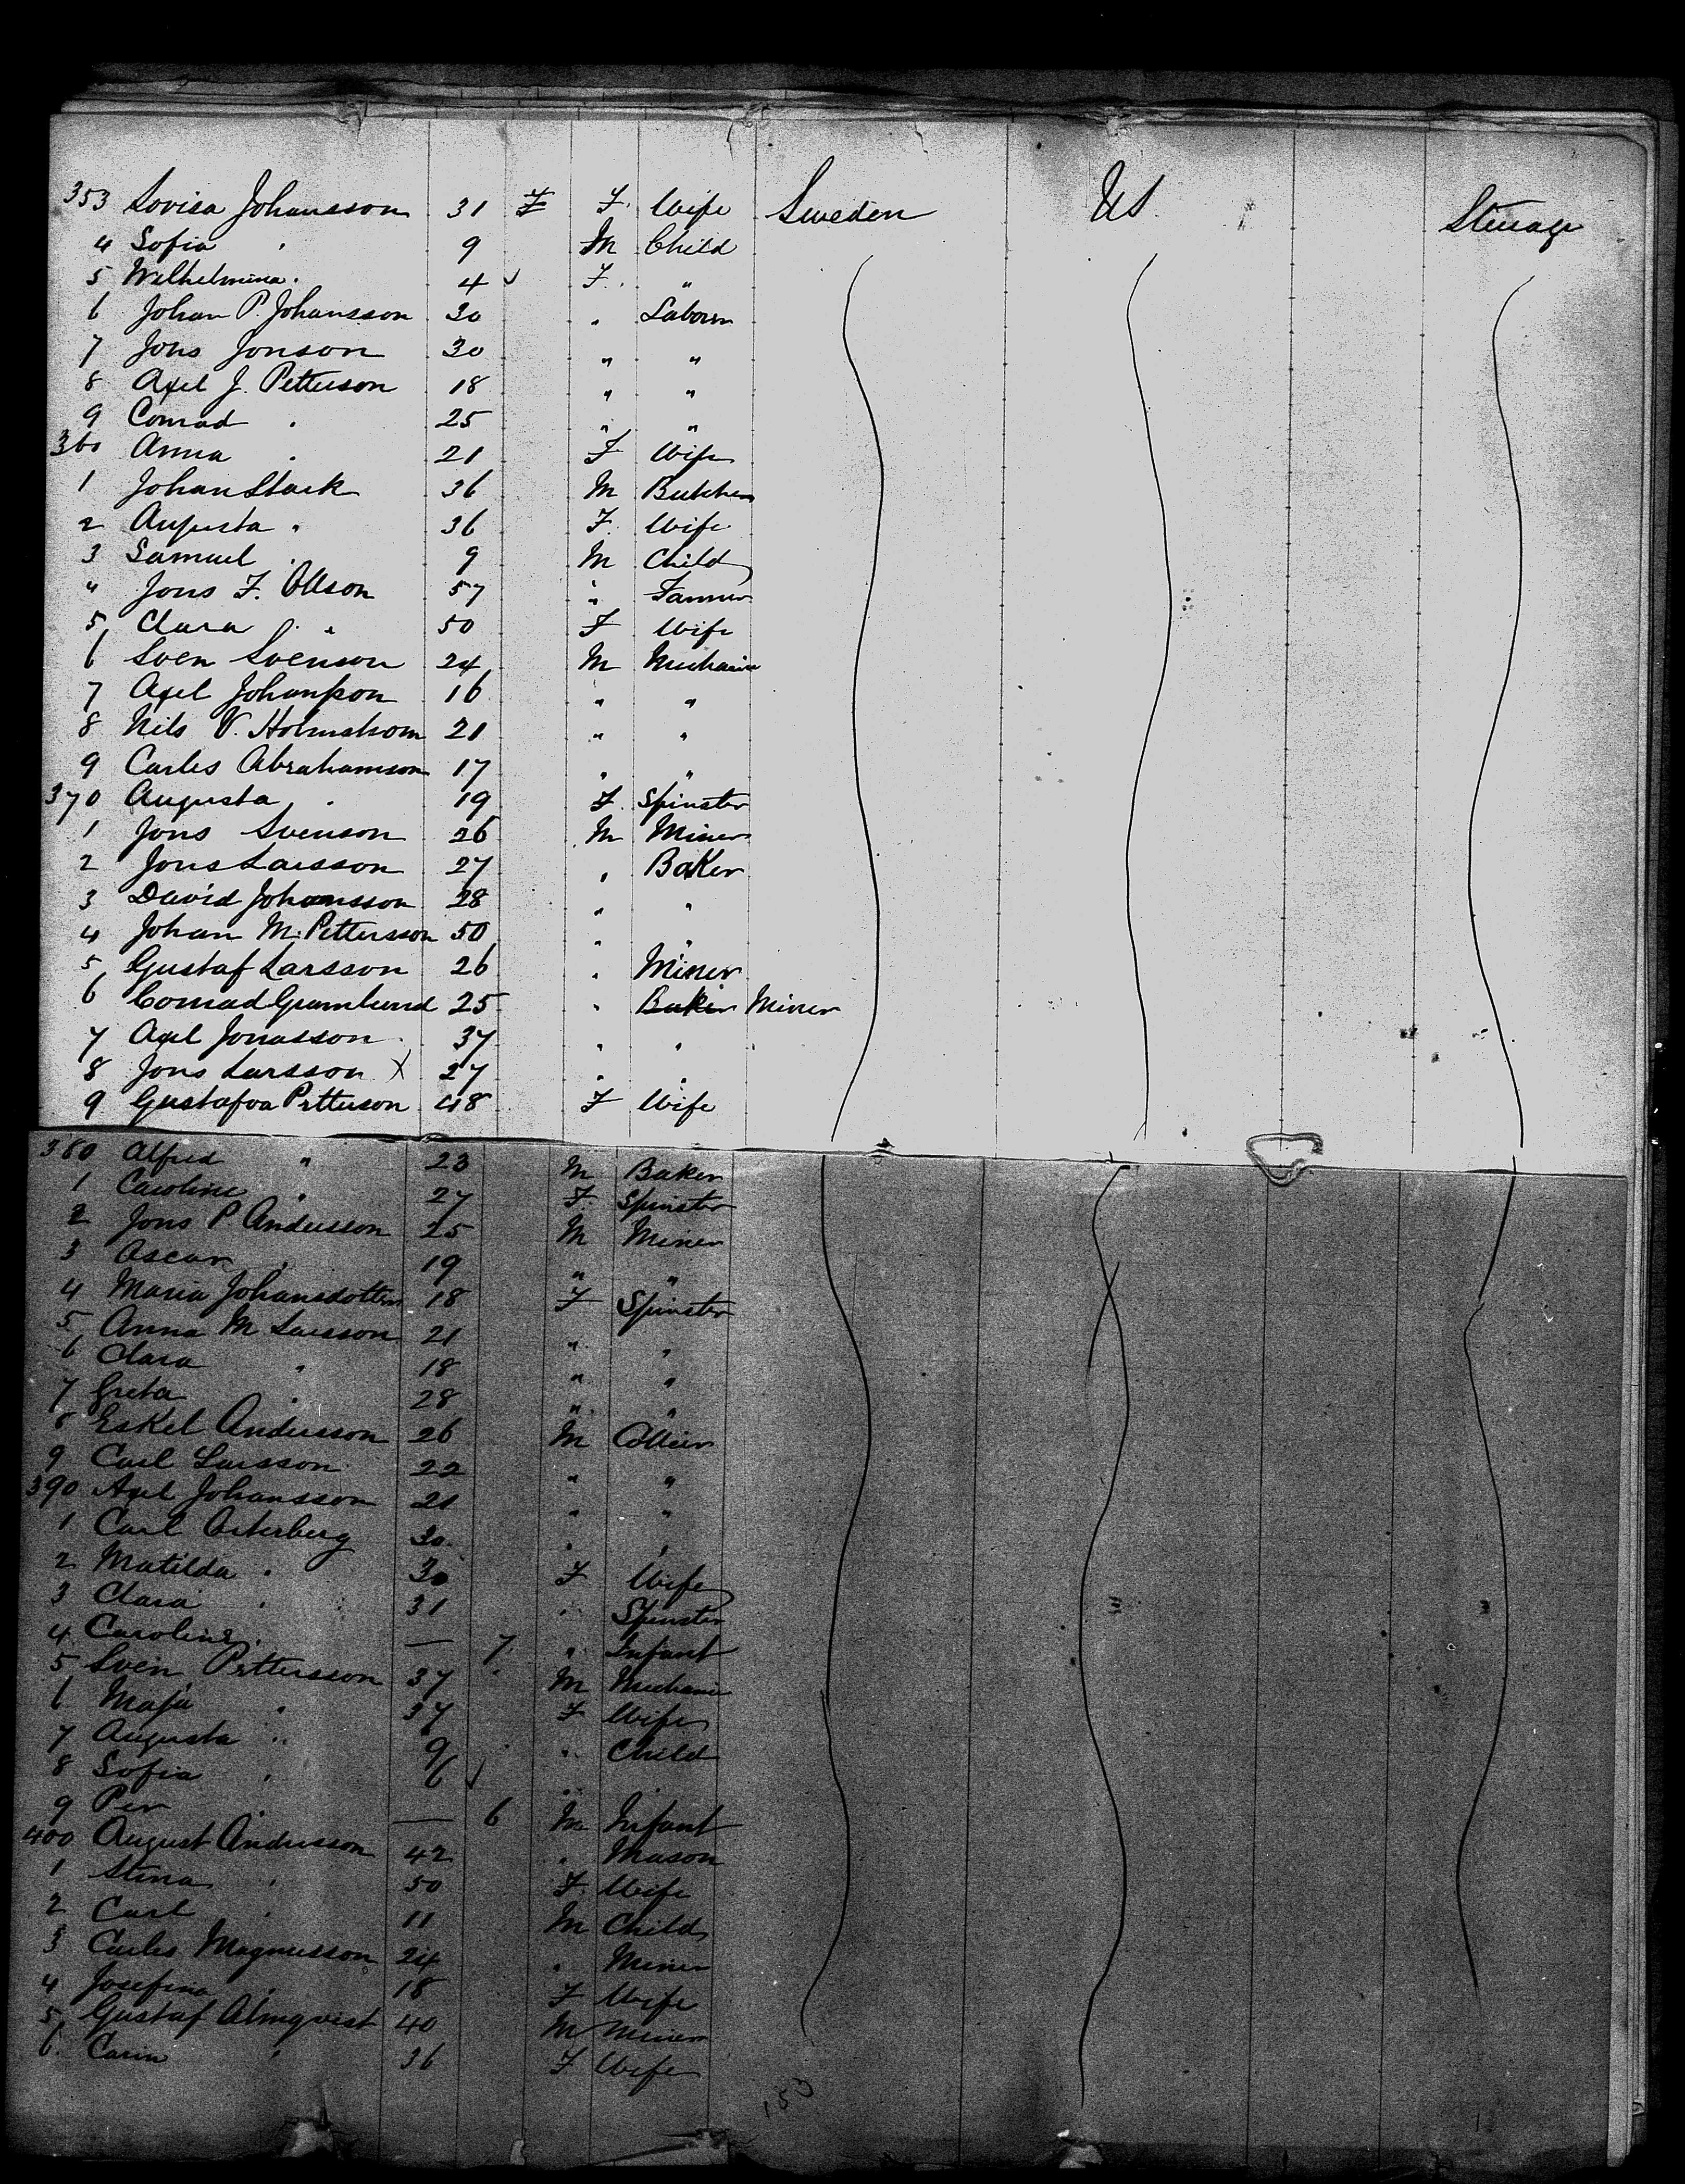 353 Lovisa Johansson 31 F F. Wife Sweden US. Steerage
4 Sofia " 9 M Child
5 Wilhelmina " 4 ✓ F. "
6 Johan P. Johansson 30 " Laborer
7 Jons Jonson 30 " "
8 Axel J. Petterson 18 " "
9 Conrad " 25 " "
360 Anna " 21 F Wife
1 Johan Stark 36 M Butcher
2 Augusta " 36 F. Wife
3 Samuel " 9 M Child
" Jons F. Olson 57 " Farmer
5 Clara " 50 F Wife
6 Sven Svenson 24 M Mechanic
7 Axel Johansson 16 " "
8 Nils V. Holmstrom 21 " "
9 Carles Abrahamson 17 " "
370 Augusta " 19 F. Spinster
1 Jons Svenson 26 M Miner
2 Jons Larsson 27 " Baker
3 David Johansson 28 " "
4 Johan M. Pettersson 50 " "
5 Gustaf Larsson 26 " Miner
6 Conrad 25 " Baker Miner
7 Axel Jonasson 37 " "
8 Jons Larsson X 27 " "
9 Gustafva Petterson 48 F Wife
380 Alfred " 23 M Baker
1 Caroline " 27 F. Spinster
2 Jons P Andersson 25 M Miner
3 Oscar " 19 " "
4 Maria Johansdotter 18 F Spinster
5 Anna M Larsson 21 " "
6 Clara " 18 " "
7 Greta " 28 " "
8 Eskel Andersson 26 M Collier
9 Carl Larsson 22 " "
390 Axel Johansson 21 " "
1 Carl Osterberg 30 " "
2 Matilda " 30 F Wife
3 Clara " 31 " Spinster
4 Caroline " — 7 " Infant
5 Sven Pettersson 37 M Mechanic
6 Maja " 37 F Wife
7 Augusta " 9 " Child
8 Sofia " 6 ✓ "
9 Per " — 6 M Infant
400 August Andersson 42 " Mason
1 Stina " 50 F Wife
2 Carl " 11 M Child
3 Carles Magnusson 24 " Miner
4 Josefina " 18 F Wife
5 Gustaf Almqvist 40 M Miner
6. Carin " 36 F Wife
153